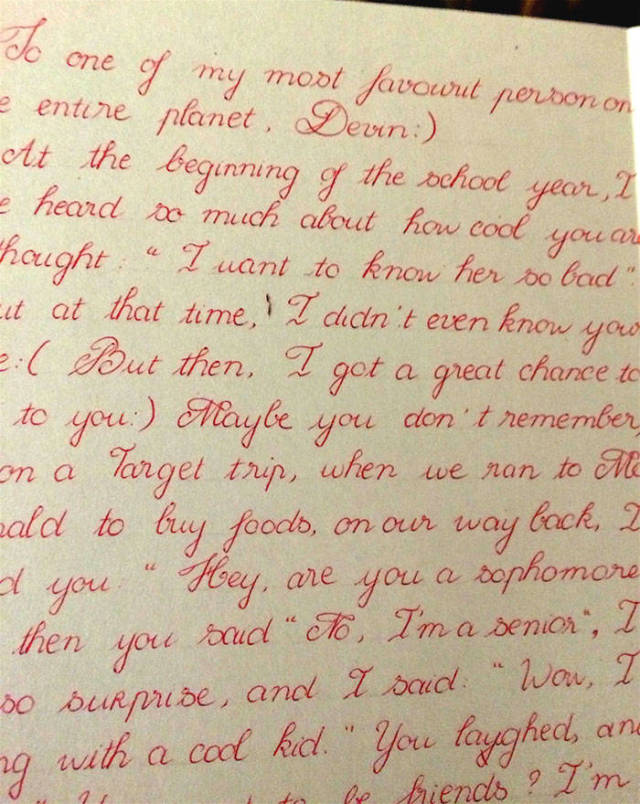 To one of my most favourit person on
e entire planet, Devin:)
At the beginning of the school year, I
e heard so much about how cool you are
thought: "I want to know her so bad".
ut at that time, I didn't even know your
e:( But then, I got a great chance to
to you:) Maybe you don't remember,
on a Target trip, when we ran to Mc
nald to buy foods, on our way back, I
d you: "Hey, are you a sophomore
then you said "No, I'm a senior", I
so surprise, and I said: "Wow, I
ng with a cool kid." You layghed, and
to be friends? I'm